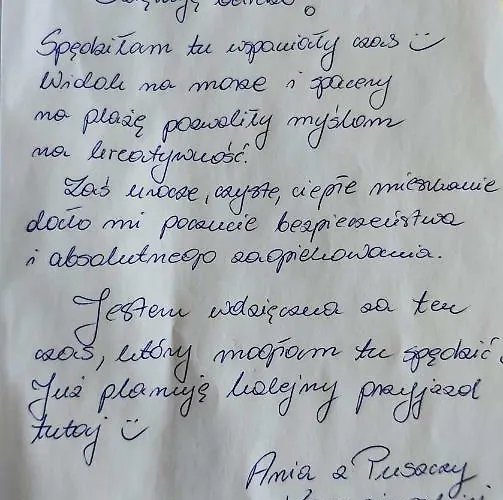 Spędziłam tu wspaniały czas :)
Widok na morze i spacery
na plażę pozwoliły myślom
na kreatywność.
Zaś urocze, czyste, ciepłe mieszkanie
dało mi poczucie bezpieczeństwa
i absolutnego zaopiekowania.
Jestem wdzięczna za ten
czas, który mogłam tu spędzić.
Już planuję kolejny przyjazd
tutaj :)
Ania z Puszczy